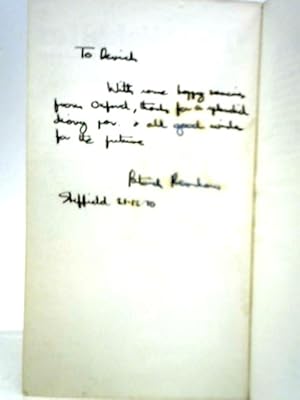 To Derrick
With some happy memories
from Oxford, thanks for a splendid
and all good wishes
for the future
Patrick
Sheffield 21-12-70